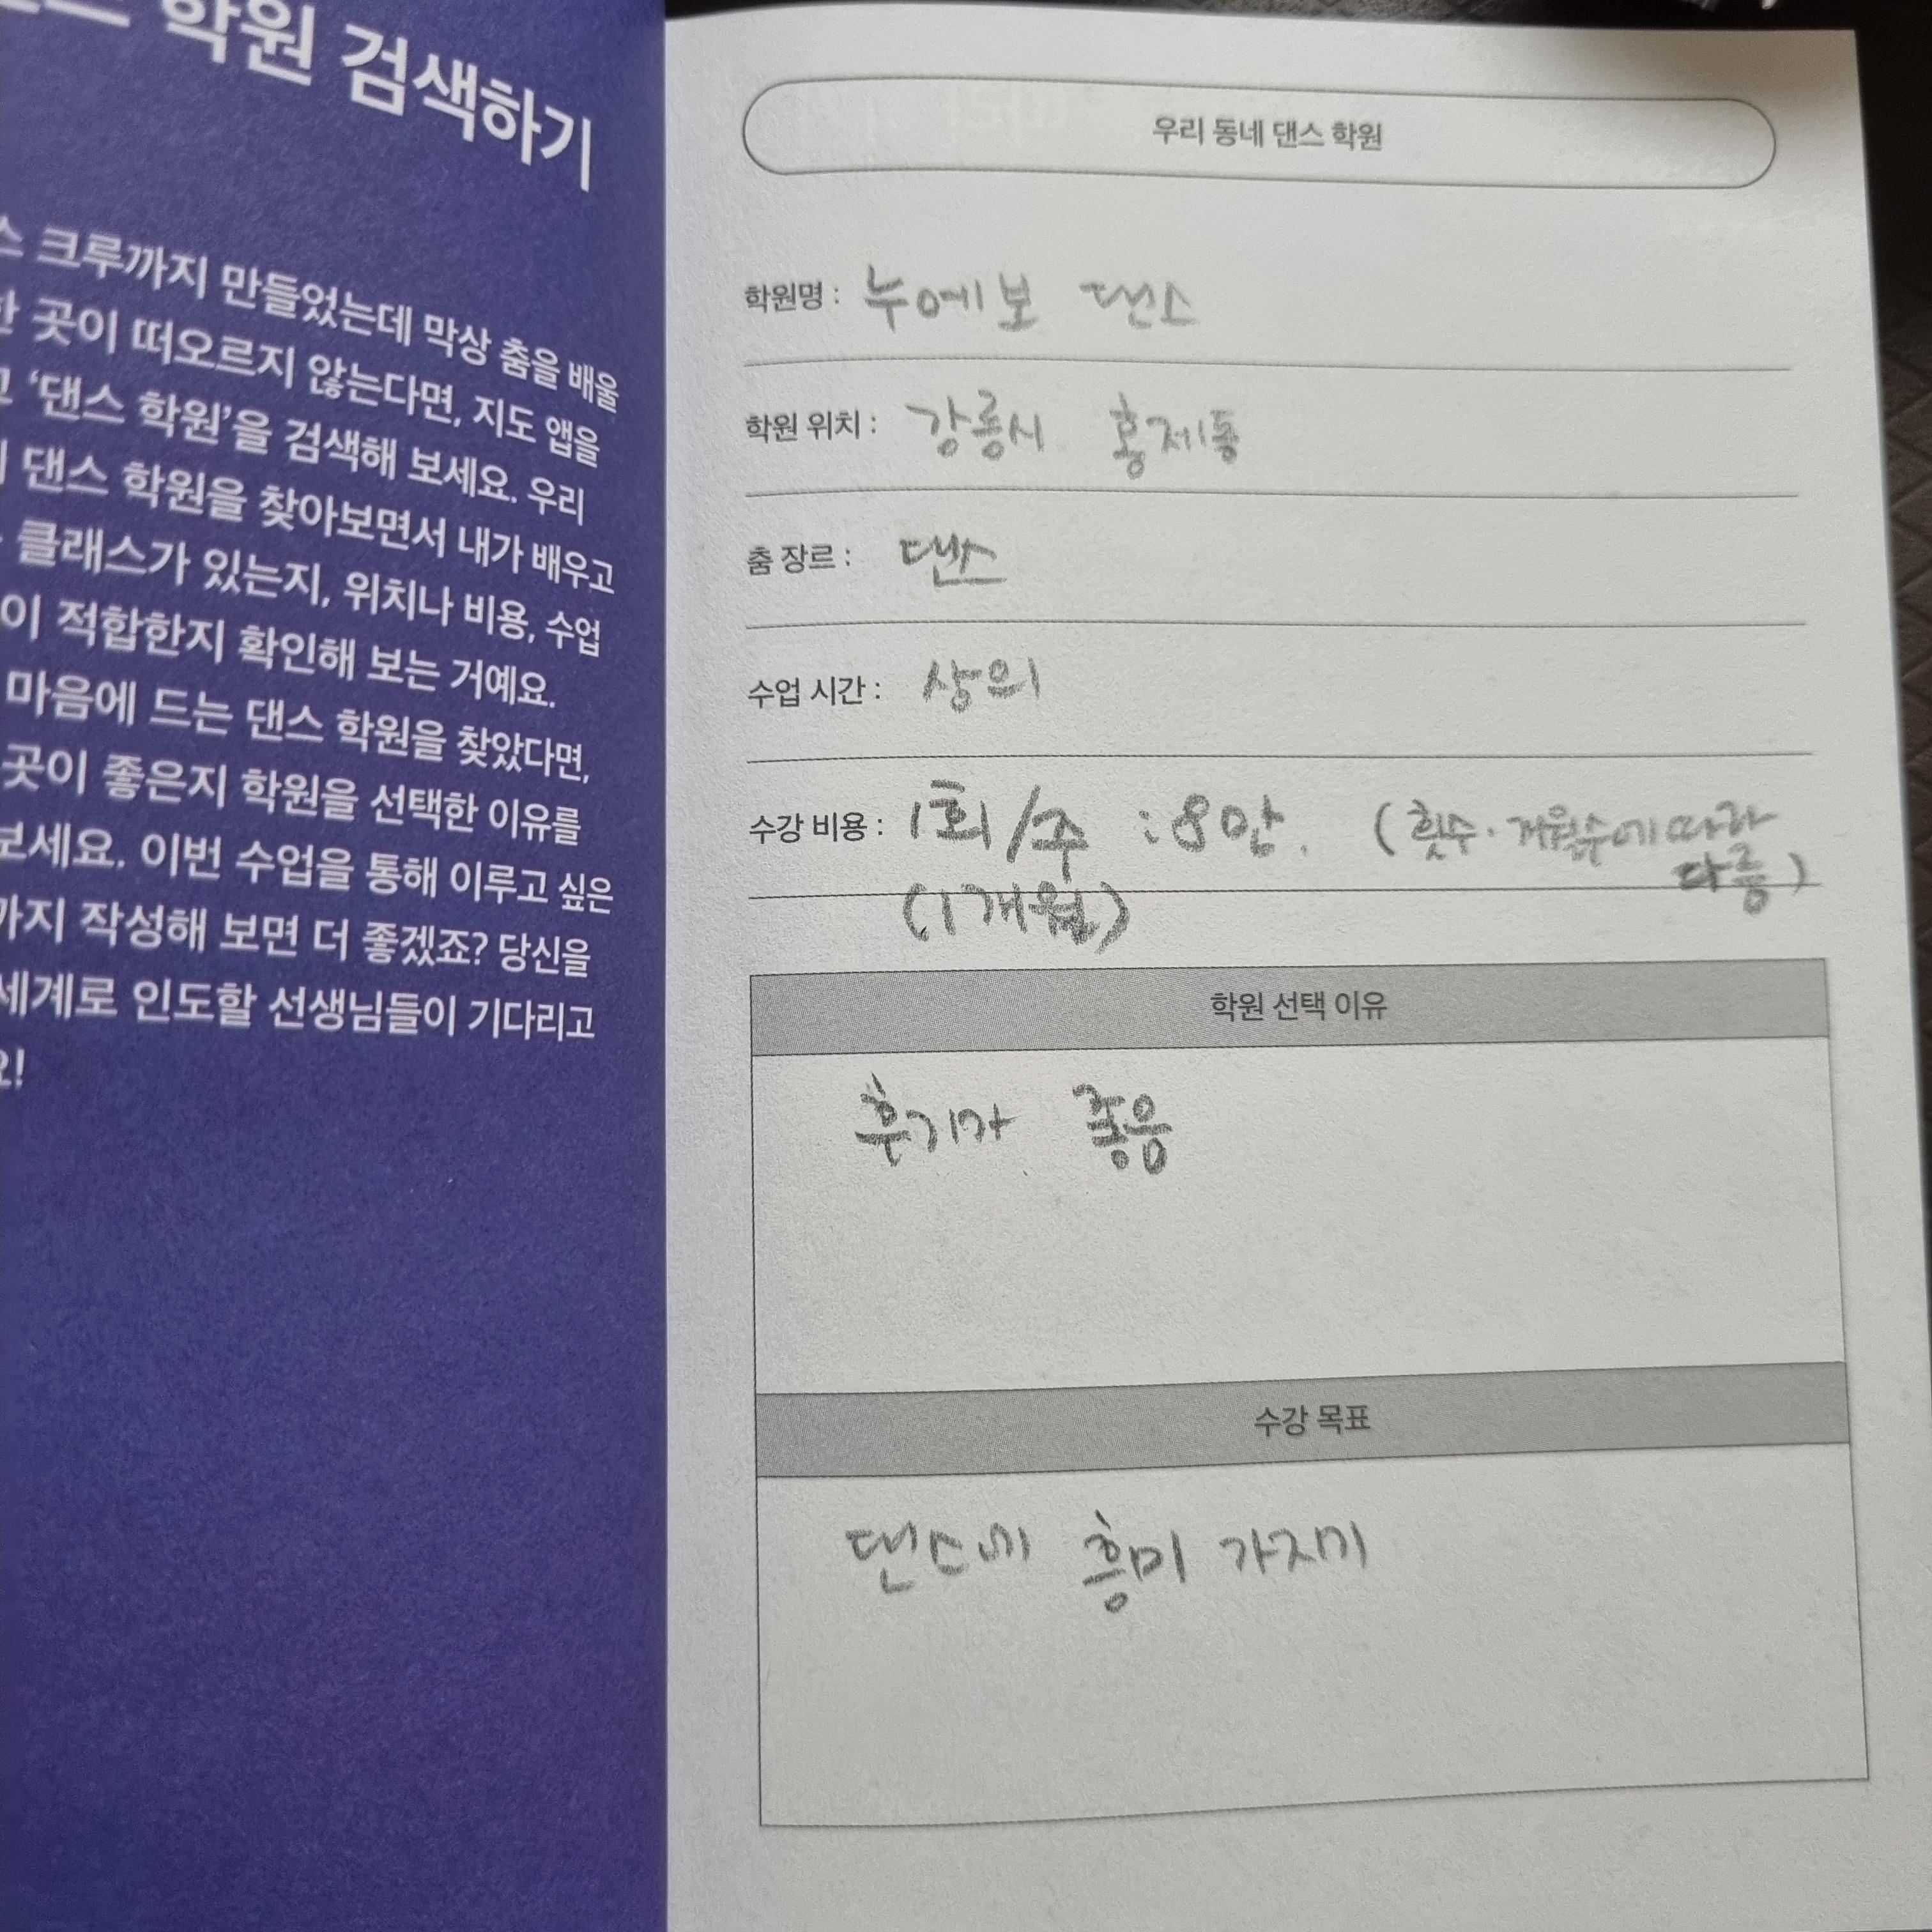 학원 검색하기
크루까지 만들었는데 막상 춤을 배울
곳이 떠오르지 않는다면, 지도 앱을
‘댄스 학원’을 검색해 보세요. 우리
댄스 학원을 찾아보면서 내가 배우고
클래스가 있는지, 위치나 비용, 수업
적합한지 확인해 보는 거예요.
마음에 드는 댄스 학원을 찾았다면,
곳이 좋은지 학원을 선택한 이유를
보세요. 이번 수업을 통해 이루고 싶은
까지 작성해 보면 더 좋겠죠? 당신을
세계로 인도할 선생님들이 기다리고
요!
우리 동네 댄스 학원
학원명 : 누에보 댄스
학원 위치 : 강릉시 홍제동
춤 장르 : 댄스
수업 시간 : 상의
수강 비용 : 1회/주 : 8만. (횟수·개월수에 따라
다름)
(1개월)
학원 선택 이유
후기가 좋음
수강 목표
댄스에 흥미 가지기